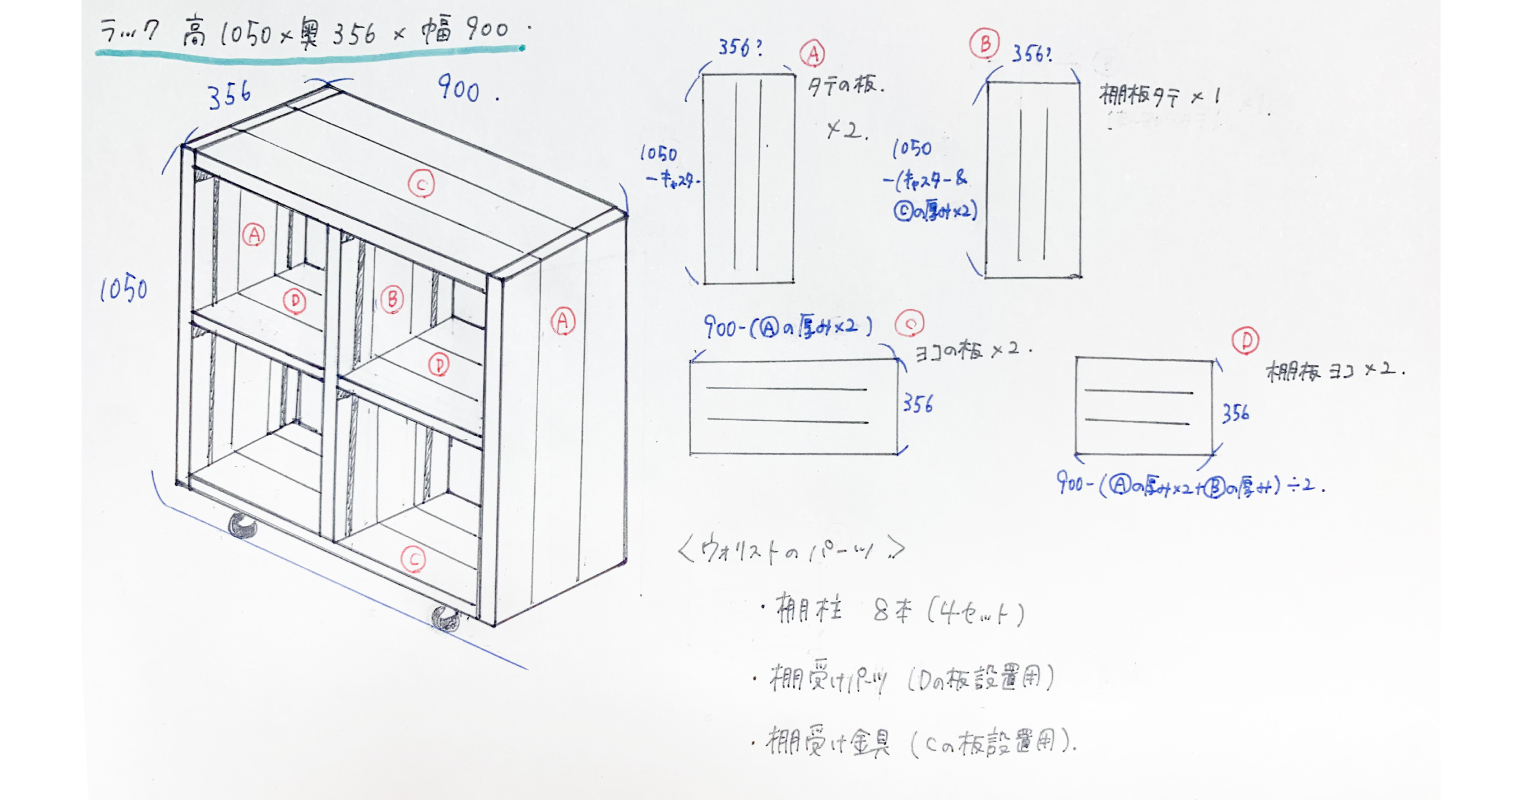 ラック 高1050×奥356×幅900.
356
900.
1050
Ⓒ
Ⓐ
Ⓓ
Ⓑ
Ⓓ
Ⓐ
Ⓒ
356?
Ⓐ
タテの板.
×2.
1050
-キャスター
Ⓑ
356?
棚板タテ×1
1050
-(キャスター&
Ⓒの厚み×2)
900-(Ⓐの厚み×2)
Ⓒ
ヨコの板×2.
356
Ⓓ
棚板ヨコ×2.
356
900-(Ⓐの厚み×2+Ⓑの厚み)÷2.
<ウォリストのパーツ>
・棚柱 8本(4セット)
・棚受けパーツ(Dの板設置用)
・棚受け金具(Cの板設置用).